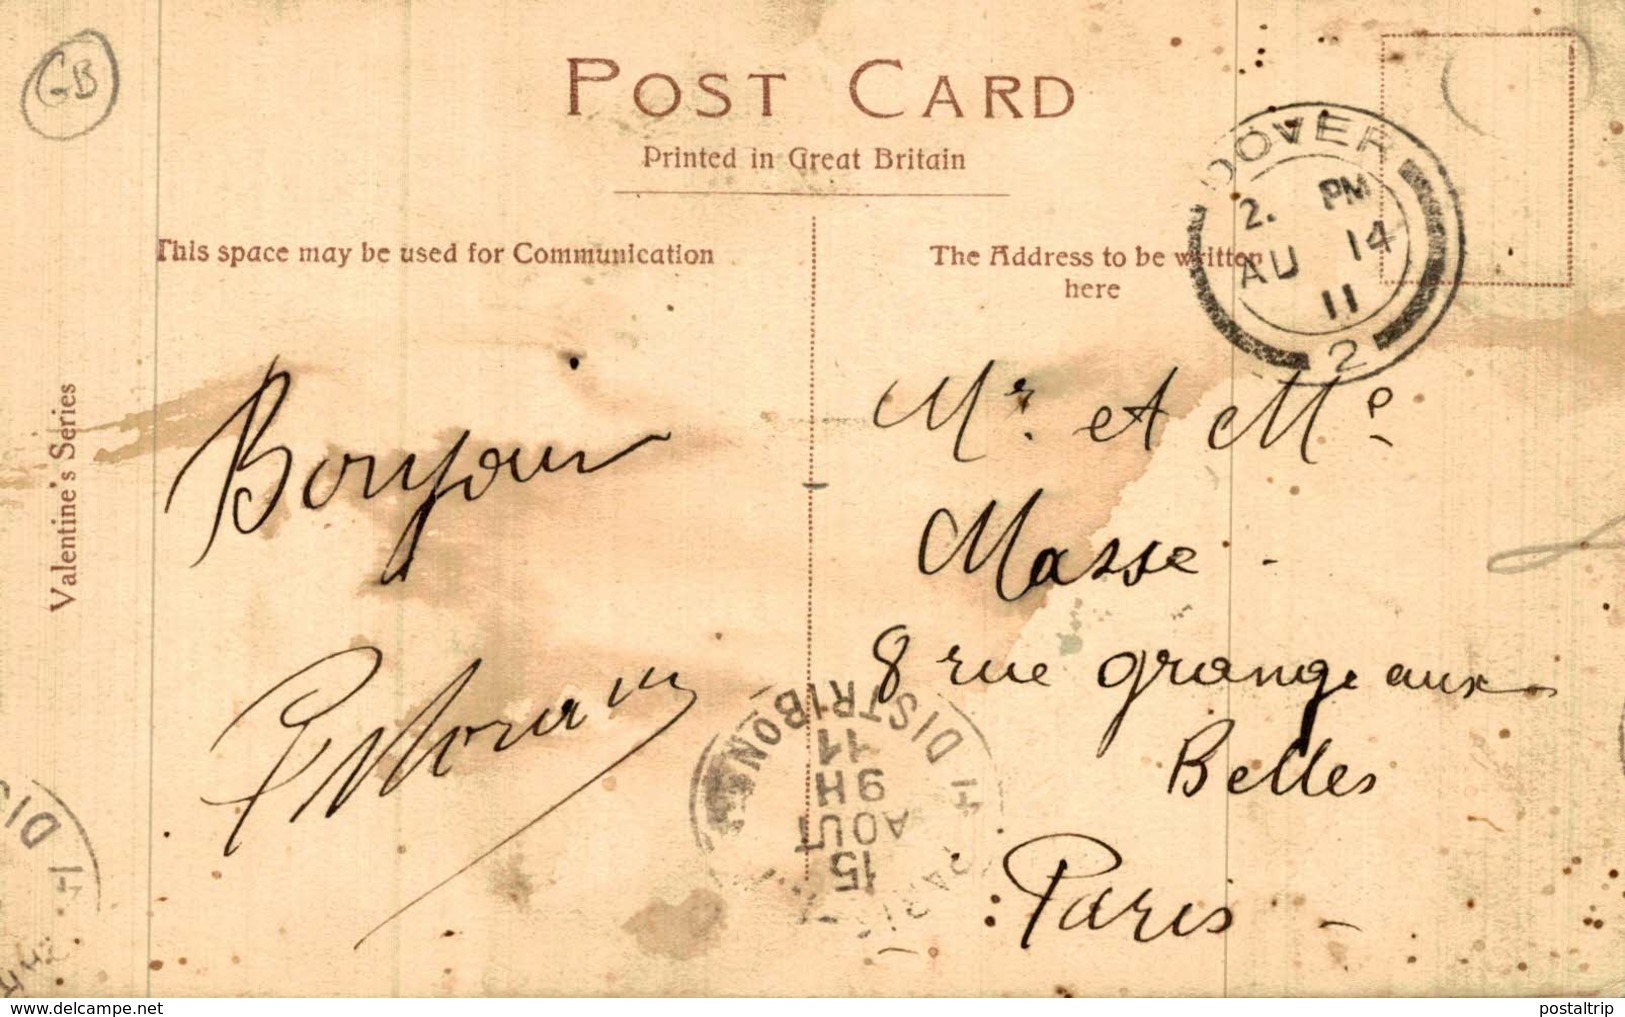 GB
POST CARD
Printed in Great Britain
This space may be used for Communication
The Address to be written
here
DOVER
2. PM
AU 14
11
2
Valentine's Series
Bonjour
Mr. et Me
Masse -
8 rue grangeaux
Belles
Paris -
DISTRIBON
15
AOUT
9H
11
PARIS
DIS
www.delcampe.net
postaltrip